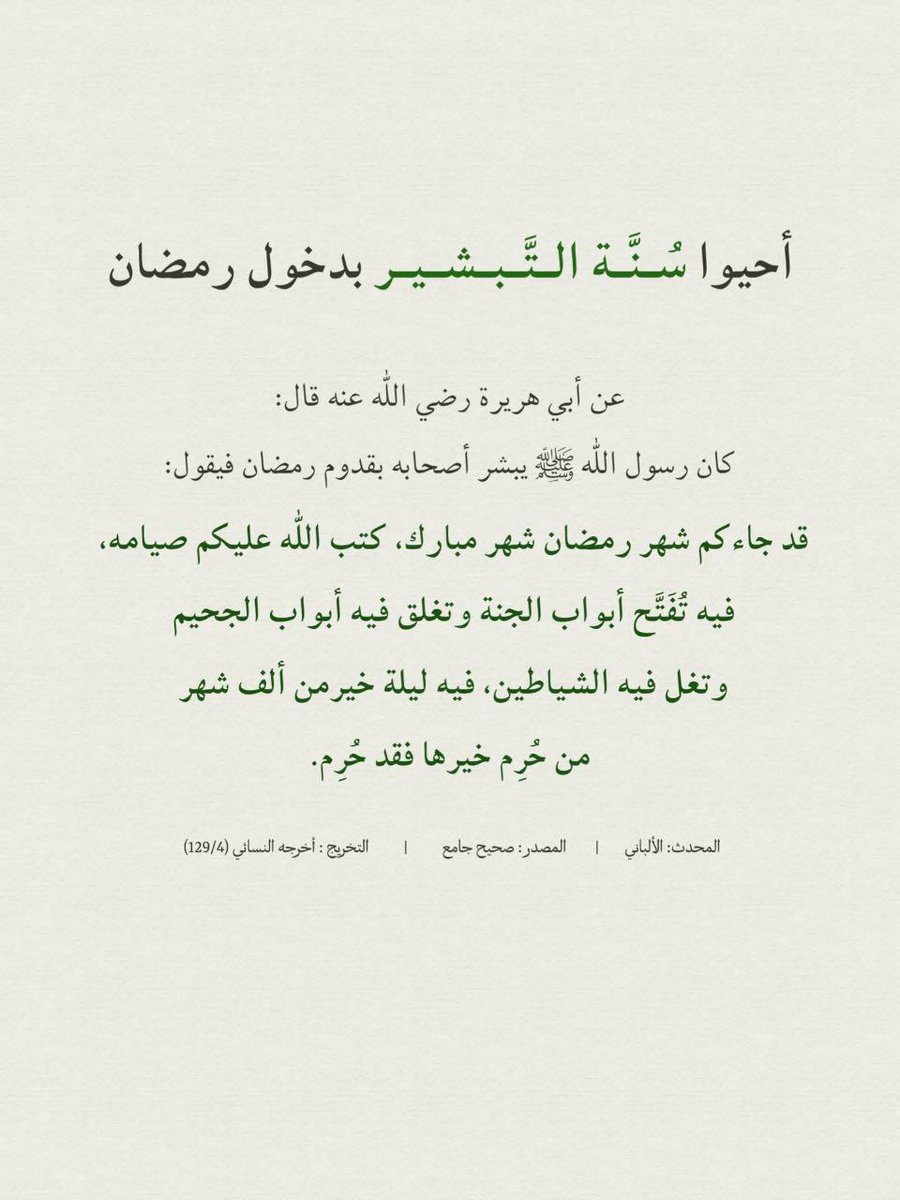 أحيوا سُـنَّـة الـتَّـبـشـيـر بدخول رمضان
عن أبي هريرة رضي الله عنه قال:
كان رسول الله ﷺ يبشر أصحابه بقدوم رمضان فيقول:
قد جاءكم شهر رمضان شهر مبارك، كتب الله عليكم صيامه،
فيه تُفَتَّح أبواب الجنة وتغلق فيه أبواب الجحيم
وتغل فيه الشياطين، فيه ليلة خيرمن ألف شهر
من حُرِم خيرها فقد حُرِم.
المحدث: الألباني | المصدر: صحيح جامع | التخريج : أخرجه النسائي (129/4)